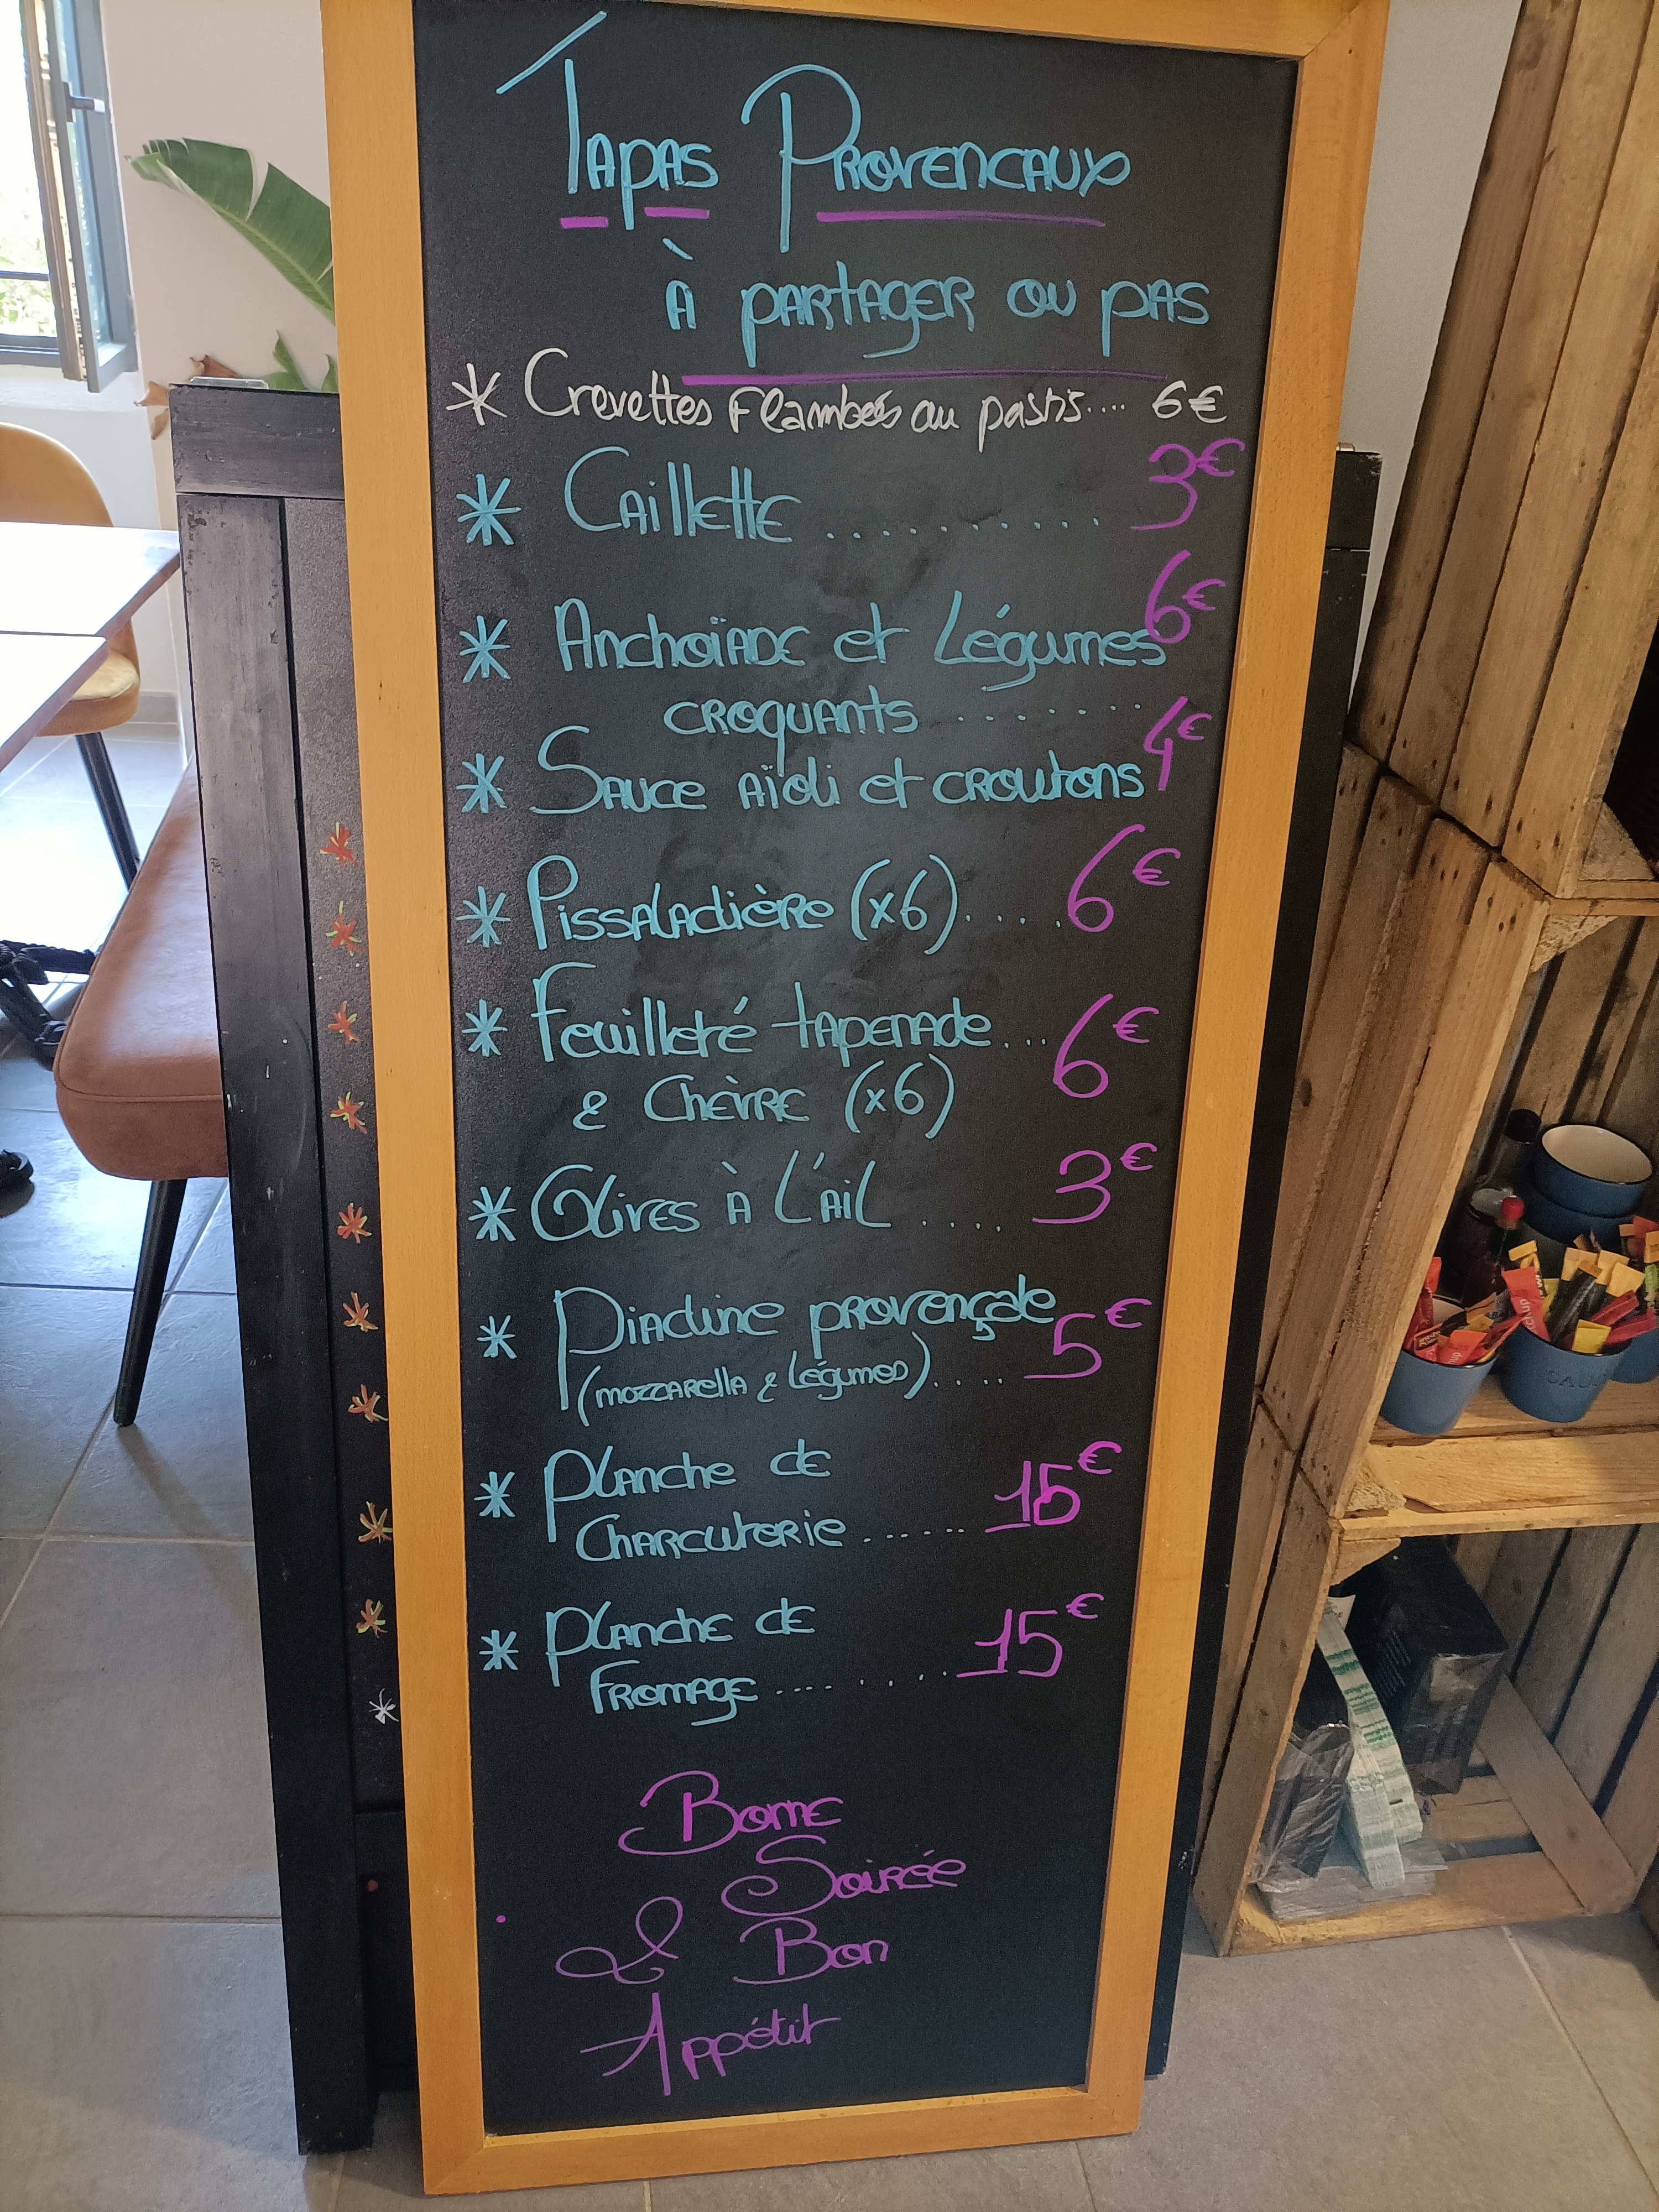 Tapas Provencaux
à partager ou pas
* Crevettes Flambées au pastis.... 6€
* Caillette .......... 3€
* Anchoïade et Légumes 6€
croquants ........
* Sauce aïoli et croutons 4€
* Pissaladière (x6)..... 6€
* Feuilleté tapenade... 6€
& Chèvre (x6)
* Olives à l'ail .... 3€
* Piadine provençale 5€
(mozzarella & légumes)....
* Planche de 15€
Charcuterie ......
* Planche de 15€
Fromage .......
Bonne
Soirée
& Bon
Appétit